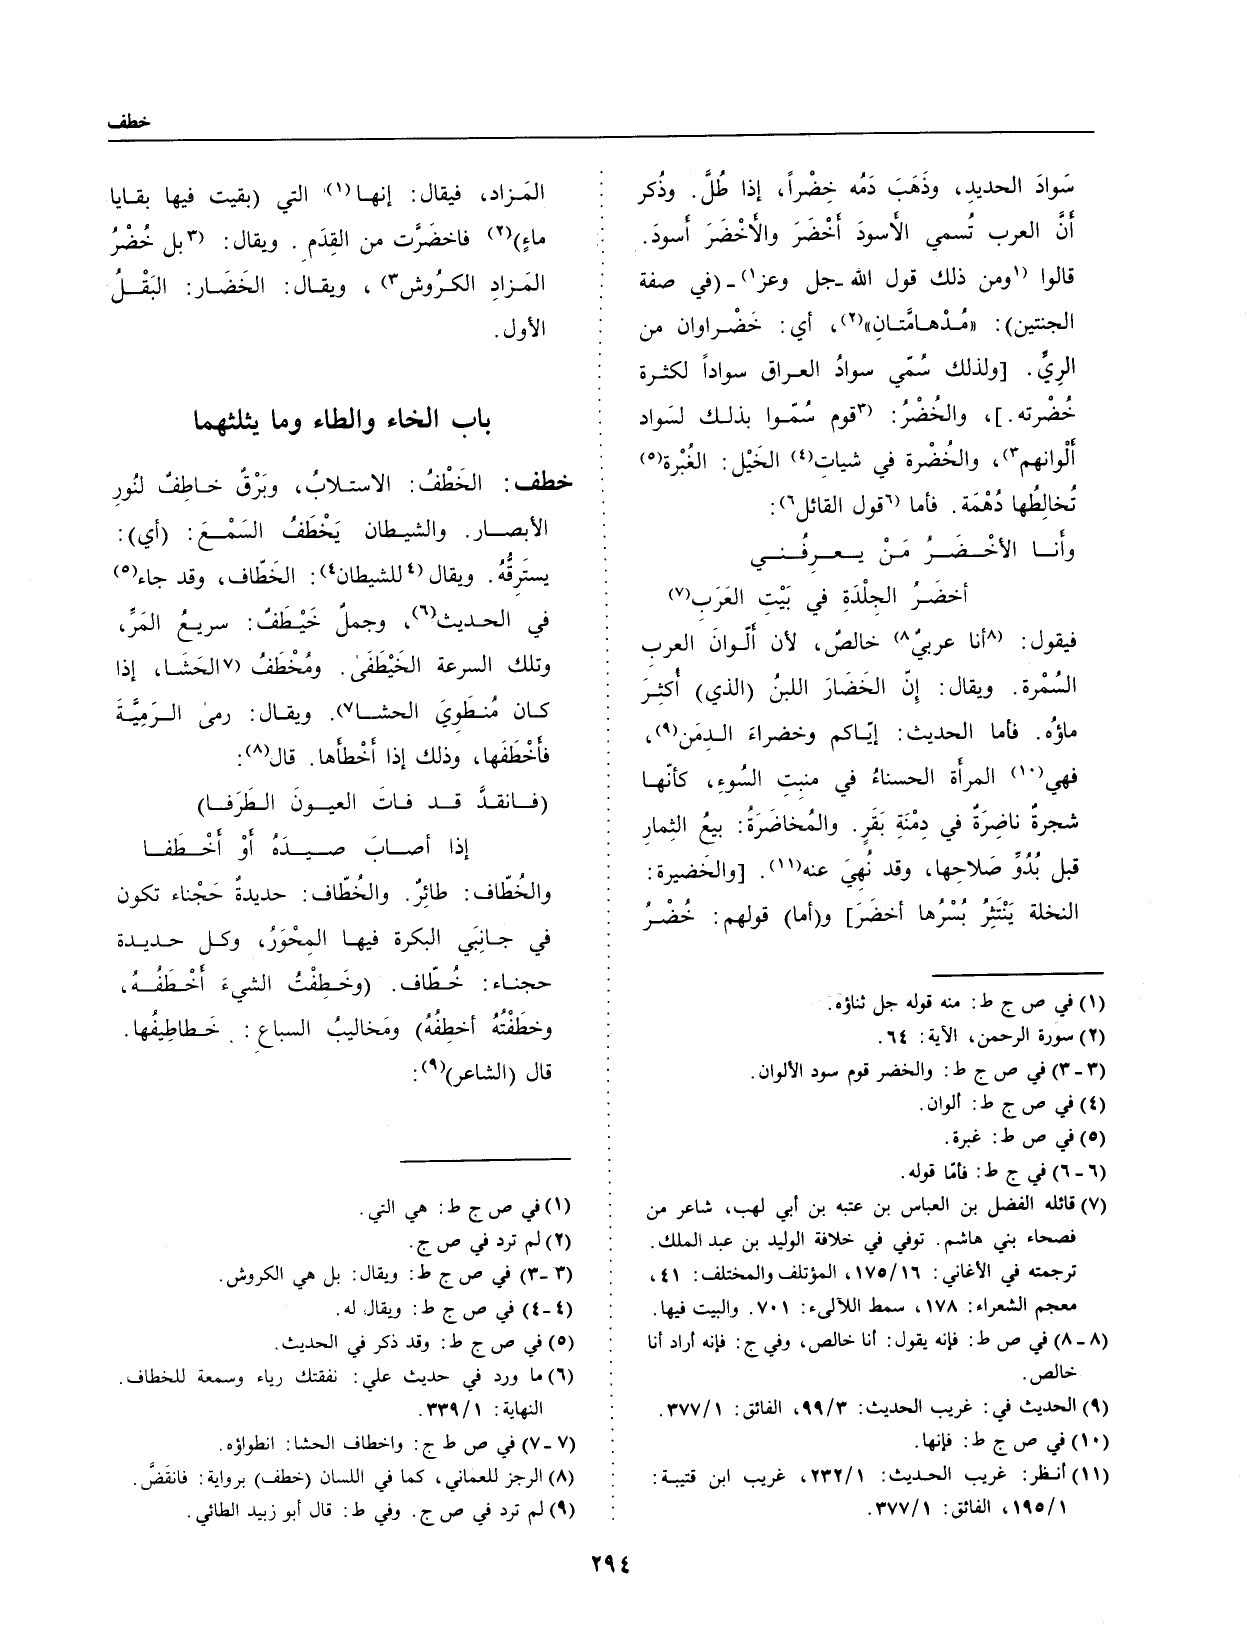 خطف
سَوادَ الحديدِ، وذَهَبَ دَمُه خِضْراً، إذا طُلَّ. وذُكر
أنَّ العرب تُسمي الأسودَ أَخْضَرَ والأَخْضَرَ أسودَ.
قالوا (١ومن ذلك قول الله ـ جل وعز١) ـ (في صفة
الجنتين): «مُـدْهـامَّتـانِ»(٢)، أي: خَضْـراوان من
الرِيِّ. [ولذلك سُمّي سوادُ العـراق سواداً لكثـرة
خُضْرته.]، والخُضْرُ: (٣قوم سُمّـوا بذلـك لسَواد
ألْوانهم٣)، والخُضْرة في شيات(٤) الخَيْل: الغُبْرة(٥)
تُخالِطُها دُهْمَة. فأما (٦قول القائل٦):
وأنـا الأخْـضَـرُ مَـنْ يـعـرِفُـنـي
أخضَـرُ الجِلْدَةِ في بَيْتِ العَرَبِ(٧)
فيقول: (٨أنا عربيٌ٨) خالصٌ، لأن ألْـوانَ العربِ
السُمْرة. ويقال: إنّ الخَضَارَ اللبنُ (الذي) أكثِـرَ
ماؤه. فأما الحديث: إيّاكم وخضراءَ الـدِمَن(٩)،
فهي(١٠) المرأة الحسناءُ في منبِتِ السُوءِ، كأنّهـا
شجرةٌ ناضِرَةٌ في دِمْنَةِ بَقَرٍ. والمُخاضَرَةُ: بيعُ الثِمار
قبل بُدُوِّ صَلاحِها، وقد نُهِيَ عنه(١١). [والخَضيرة:
النخلة يَنْتَثِرُ بُسْرُها أخضَرَ] و(أما) قولهم: خُضْـرُ
(١) في ص ج ط: منه قوله جل ثناؤه.
(٢) سورة الرحمن، الآية: ٦٤.
(٣ - ٣) في ص ج ط: والخضر قوم سود الألوان.
(٤) في ص ج ط: ألوان.
(٥) في ص ط: غبرة.
(٦ - ٦) في ج ط: فأمّا قوله.
(٧) قائله الفضل بن العباس بن عتبه بن أبي لهب، شاعر من
فصحاء بني هاشم. توفي في خلافة الوليد بن عبد الملك.
ترجمته في الأغاني: ١٧٥/١٦، المؤتلف والمختلف: ٤١،
معجم الشعراء: ١٧٨، سمط اللآلىء: ٧٠١. والبيت فيها.
(٨ - ٨) في ص ط: فإنه يقول: أنا خالص، وفي ج: فإنه أراد أنا
خالص.
(٩) الحديث في: غريب الحديث: ٩٩/٣، الفائق: ٣٧٧/١.
(١٠) في ص ج ط: فإنها.
(١١) أنـظر: غريب الحديث: ٢٣٢/١، غريب ابن قتيبة:
١٩٥/١، الفائق: ٣٧٧/١.
المَـزاد، فيقال: إنهـا(١) التي (بقيت فيها بقـايا
ماءٍ)(٢) فاخضَرَّت من القِدَمِ. ويقال: (٣بل خُضْرُ
المَـزادِ الكـرُوش٣)، ويقـال: الخَضَـار: البَقْـلُ
الأول.
باب الخاء والطاء وما يثلثهما
خطف: الخَطْفُ: الاستـلابُ، وبَرْقٌ خـاطِفٌ لنُورِ
الأبصـار. والشيـطان يَخْطَفُ السَمْـعَ: (أي):
يستَرِقُهُ. ويقال (٤للشيطان٤): الخَطّاف، وقد جاء(٥)
في الحـديث(٦)، وجملٌ خَيْـطَفٌ: سريـعُ المَرِّ،
وتلك السرعة الخَيْطَفَىٰ. ومُخْطَفُ (٧الحَشَـا، إذا
كـان مُنـطَوِيَ الحشـا٧). ويقـال: رمىٰ الـرَمِيَّـةَ
فأخْطَفَها، وذلك إذا أخْطَأها. قال(٨):
(فـانقدَّ قـد فـاتَ العيـونَ الـطَرَفـا)
إذا أصـابَ صـيـدَهُ أوْ أخْـطَفـا
والخُطّاف: طائِرٌ. والخُطّاف: حديدةٌ حَجْناء تكون
في جـانِبَي البكرة فيهـا المِحْوَرُ، وكـل حـديـدة
حجنـاء: خُـطّاف. (وخَـطِفْتُ الشيءَ أخْـطَفُـهُ،
وخَطَفْتُهُ أخطِفُهُ) ومَخاليبُ السباعِ: خَـطاطِيفُها.
قال (الشاعر)(٩):
(١) في ص ج ط: هي التي.
(٢) لم ترد في ص ج.
(٣ -٣) في ص ج ط: ويقال: بل هي الكروش.
(٤-٤) في ص ج ط: ويقال له.
(٥) في ص ج ط: وقد ذكر في الحديث.
(٦) ما ورد في حديث علي: نفقتك رياء وسمعة للخطاف.
النهاية: ٣٣٩/١.
(٧ - ٧) في ص ط ج: واخطاف الحشا: انطواؤه.
(٨) الرجز للعماني، كما في اللسان (خطف) برواية: فانقَضَّ.
(٩) لم ترد في ص ج. وفي ط: قال أبو زبيد الطائي.
٢٩٤